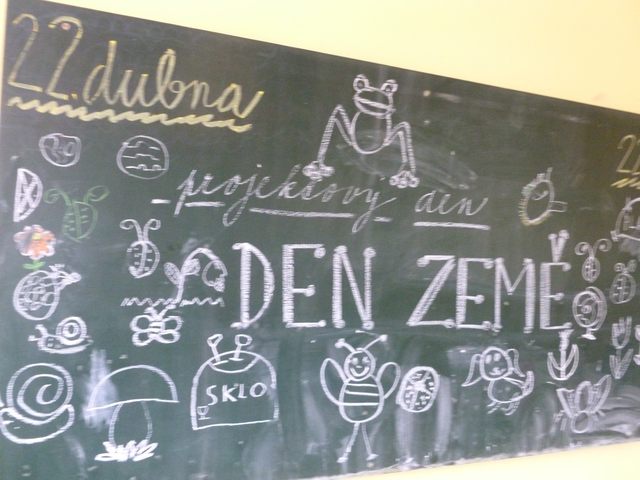 22. dubna
projektový den
DEN ZEMĚ
SKLO